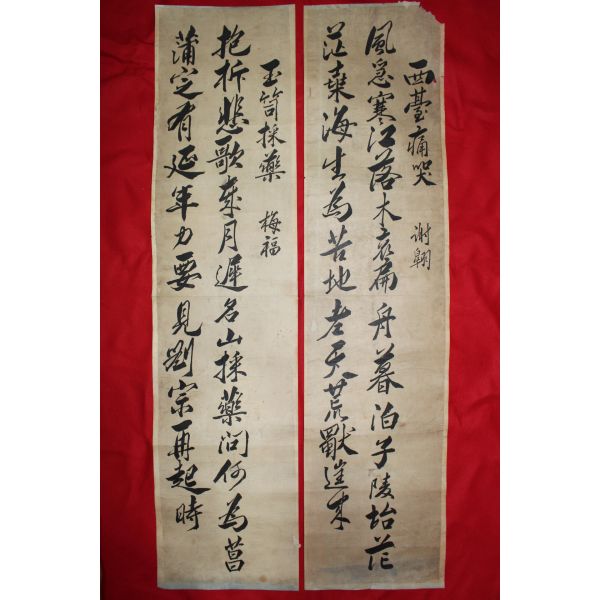 西臺痛哭 謝翺
風急寒江落木哀扁舟暮泊子陵坮茫
茫桑海生為苦地老天荒獸來
玉笥採藥 梅福
抱柝悲歌歲月遲名山採藥問何為菖
蒲定有延年力要見劉宗再起時